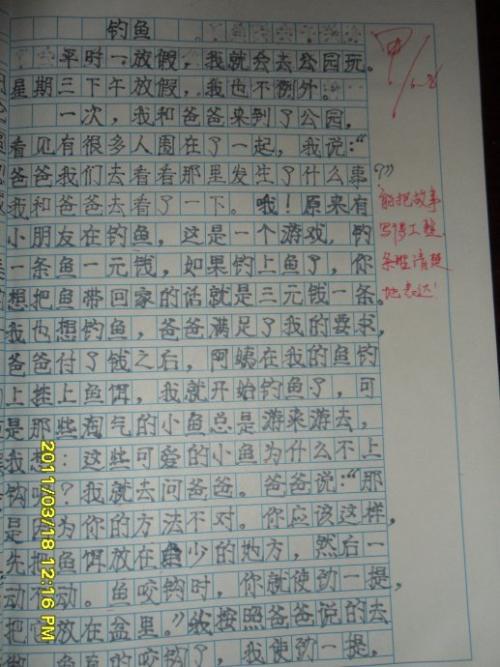 钓鱼
平时一放假，我就会去公园玩。
星期三下午放假，我也不例外。
一次，我和爸爸来到了公园，
看见有很多人围在了一起，我说：“
爸爸我们去看看那里发生了什么事
？”
我和爸爸去看了一下。哦！原来有
小朋友在钓鱼，这是一个游戏，钓
一条鱼一元钱，如果钓上鱼了，你
想把鱼带回家的话就是三元钱一条。
我也想钓鱼，爸爸满足了我的要求，
爸爸付了钱之后，阿姨在我的鱼钓
上挂上鱼饵，我就开始钓鱼了，可
是那些淘气的小鱼总是游来游去，
我想：这些可爱的小鱼为什么不上
钩呢？我就去问爸爸。爸爸说：“那
是因为你的方法不对。你应该这样，
先把鱼饵放在鱼少的地方，然后一
动不动。鱼咬钩时，你就使劲一提，
把放在盆里。”我按照爸爸说的去
鱼真的咬钩了，我使劲一提，
甲
能把故事
写得工整
条理清楚
地表达！
2011/03/18 12:16 PM